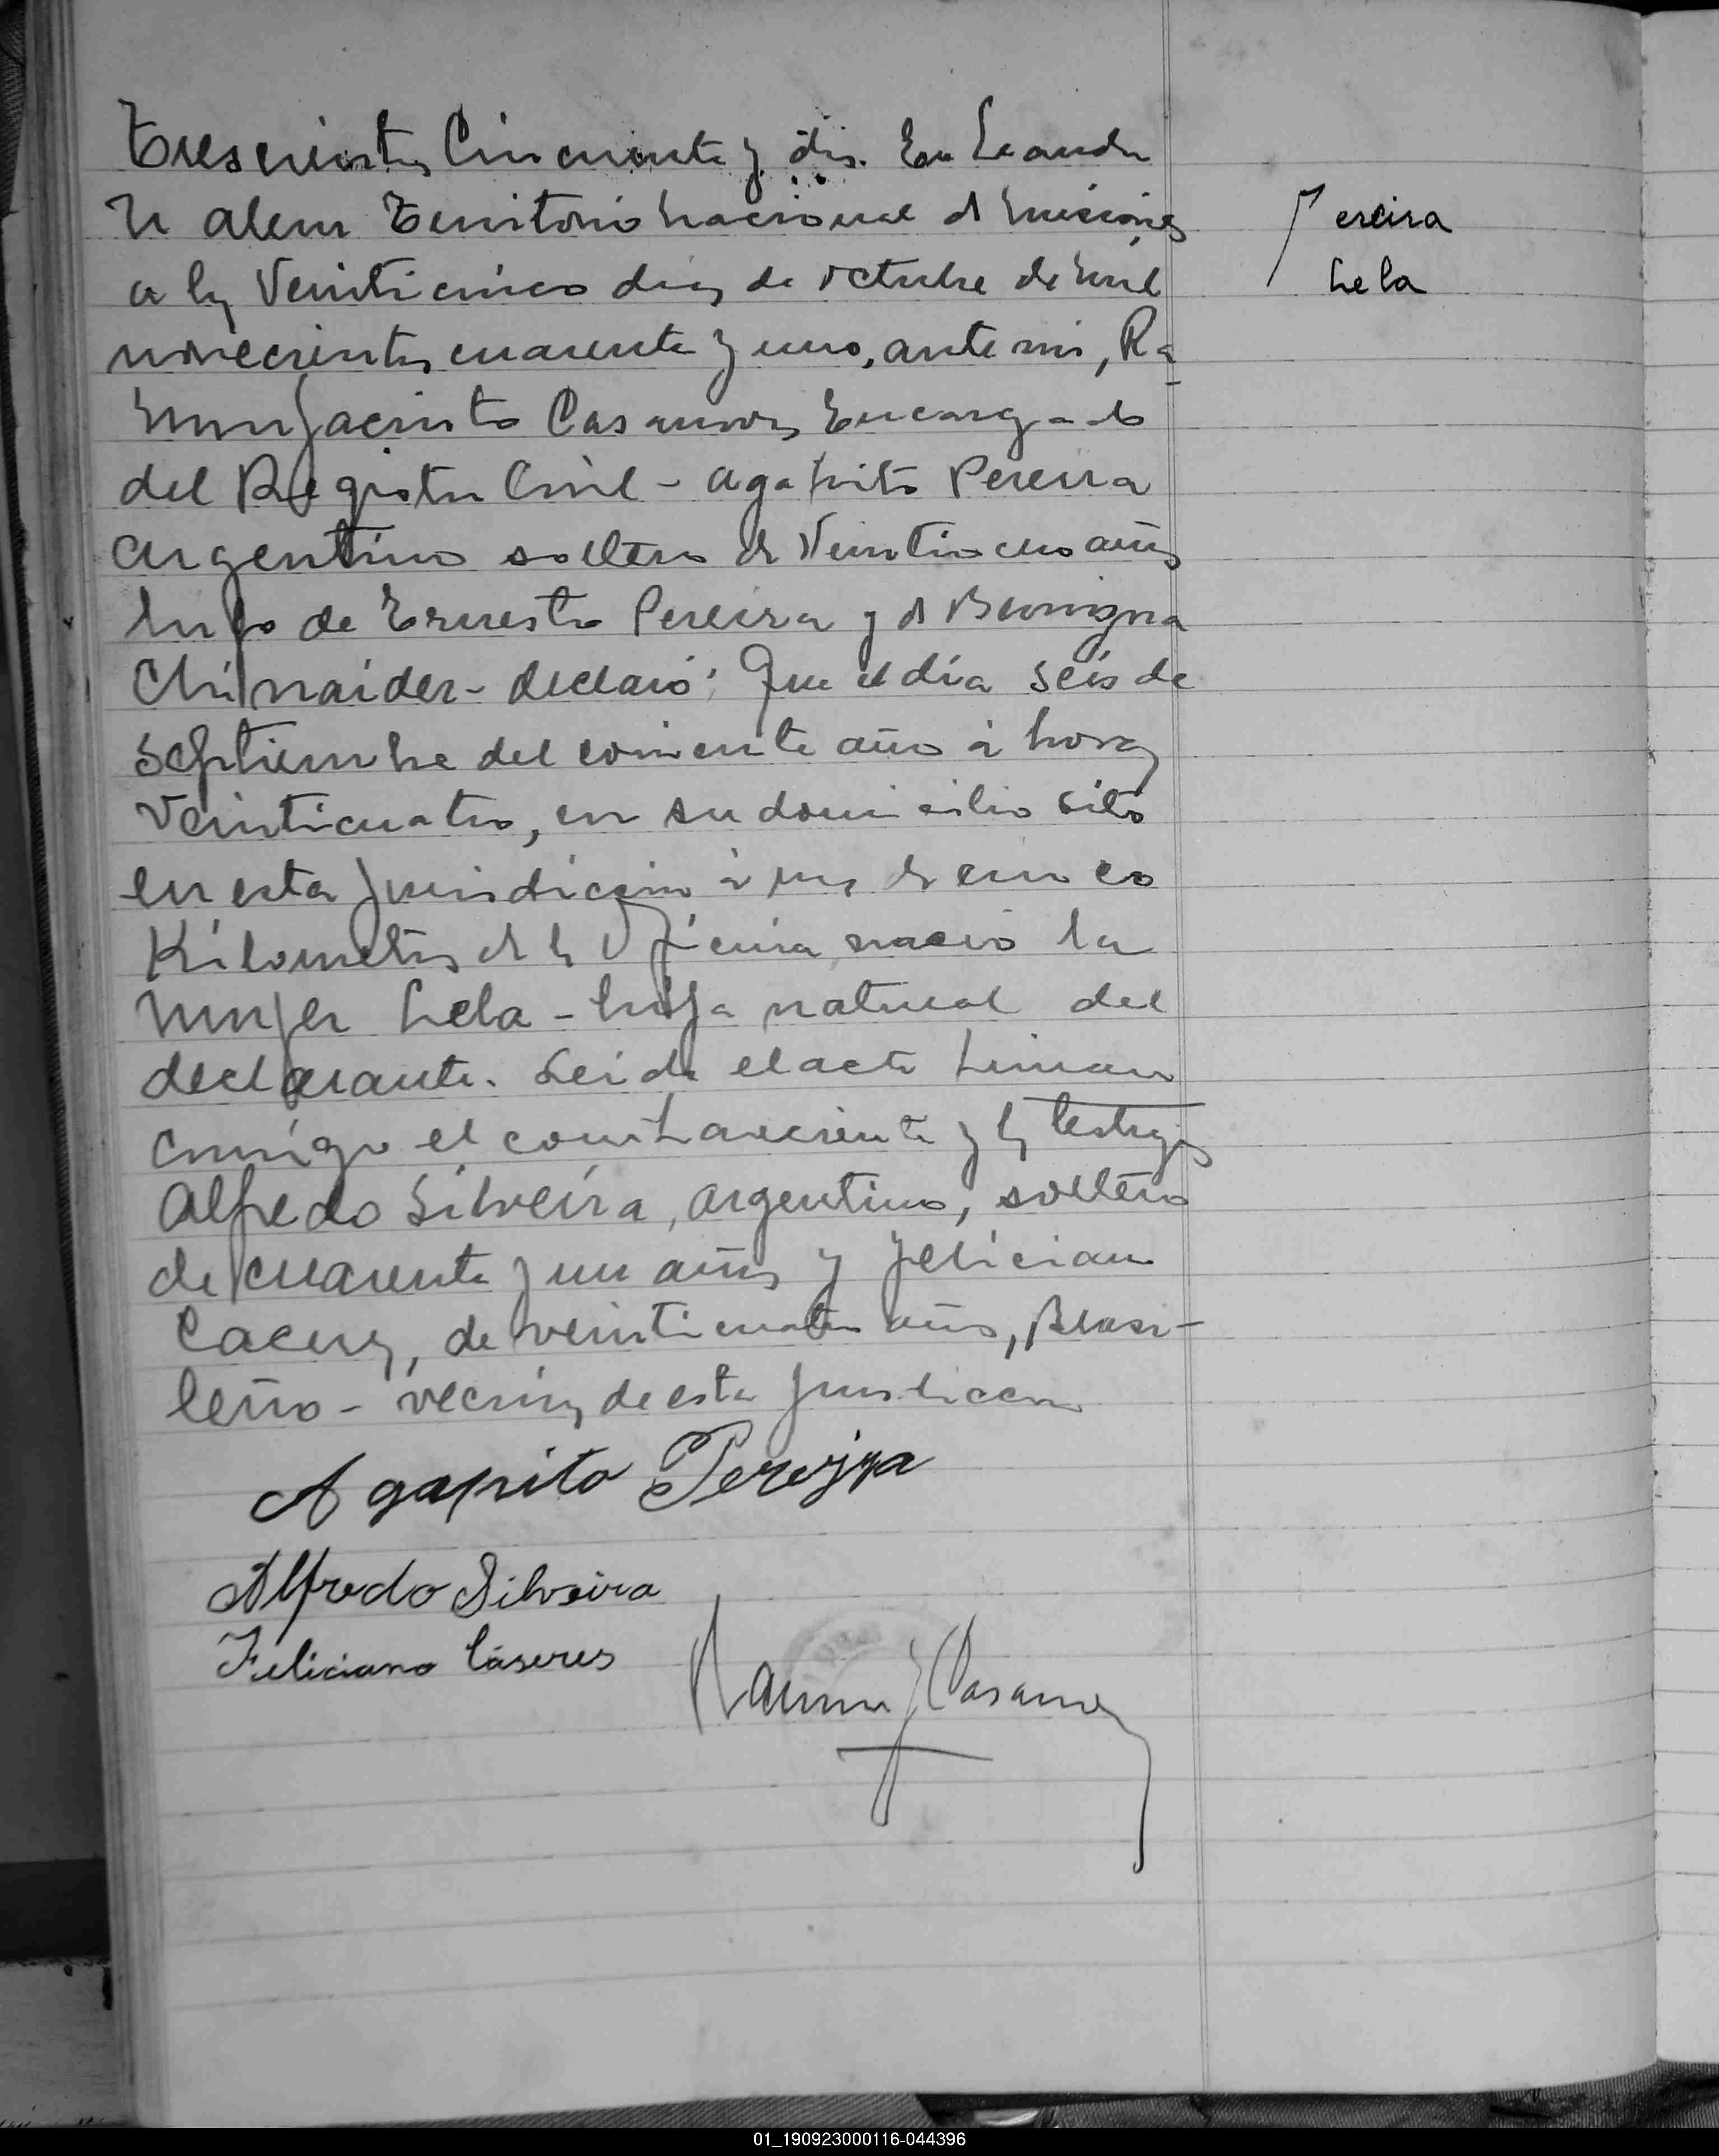 Trescientos Cincuenta y dos. En Leandro
N Alem Territorio Nacional de Misiones
a los Veinticinco dias de octubre de mil
novecientos cuarenta y uno, ante mi, Ra-
mon Jacinto Casanova, Encargado
del Registro Civil - Agapito Pereira
Argentino soltero de Veintiocho años
hijo de Ernesto Pereira y de Benigna
Chinaider - declaró: Que el día seis de
Septiembre del corriente año á horas
Veinticuatro, en su domicilio sito
en esta jurisdiccion á mas de cinco
Kilometros de la Oficina, nació la
mujer Lela - hija natural del
declarante. Leida el acta firman
conmigo el compareciente y los testigos
Alfredo Silveira, argentino, soltero
de cuarenta y un años y Feliciano
Caceres, de veinticuatro años, Brasi-
leño - vecinos de esta jurisdiccion
Agapito Pereyra
Alfredo Silveira
Feliciano Cáseres
Ramon J Casanova
Pereira
Lela
01_190923000116-044396